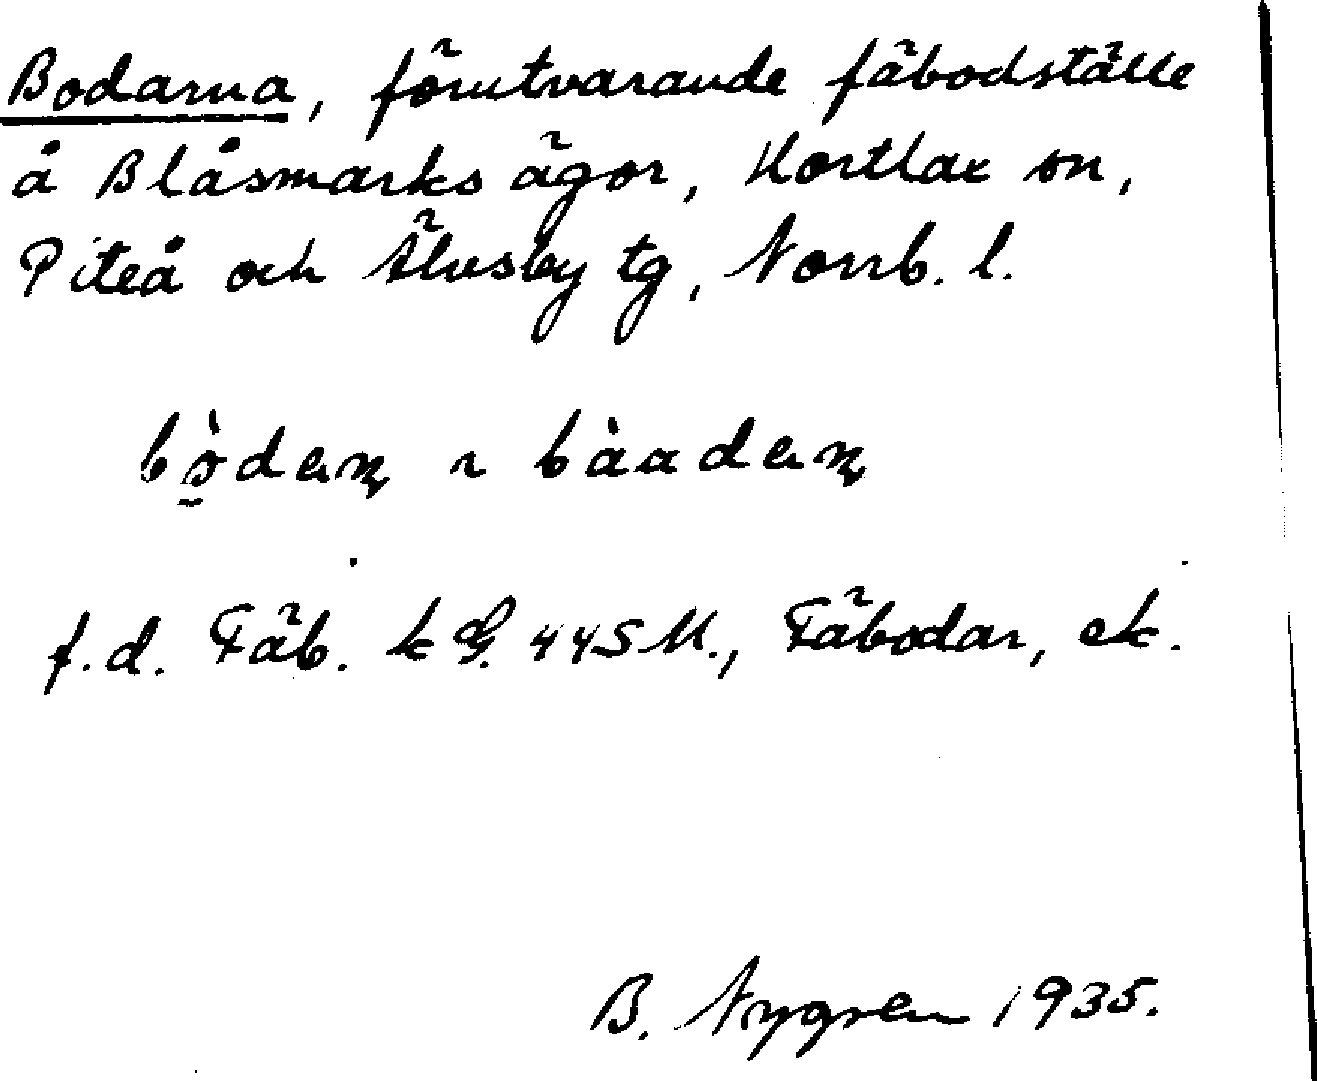 Bodarna, förutvarande fäbodställe
å Blåsmarks ägor, Hortlax sn,
Piteå och Älvsby tg, Norrb. l.
f.d. Fäb. k G. 445 M., Fäbodar, ek.
B. Nygren 1935.